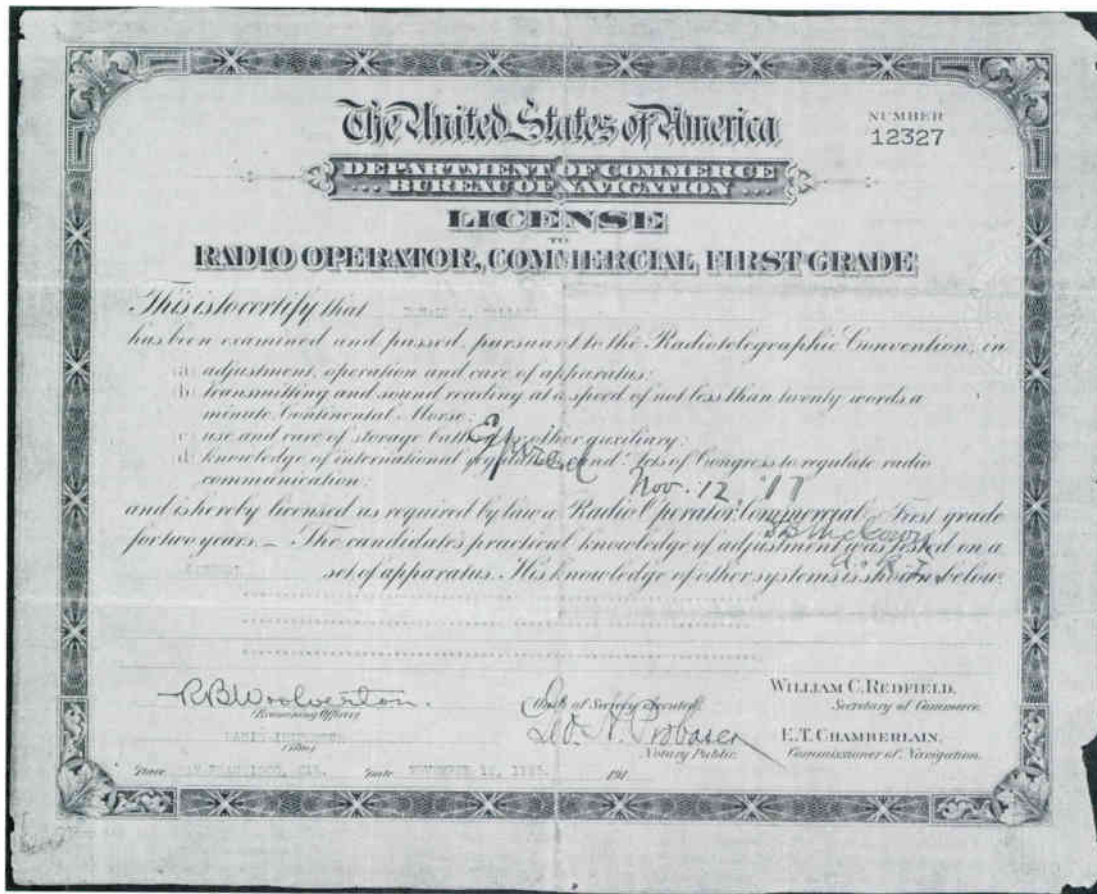 The United States of America
NUMBER
12327
DEPARTMENT OF COMMERCE
... BUREAU OF NAVIGATION ...
LICENSE
TO
RADIO OPERATOR, COMMERCIAL FIRST GRADE
This is to certify that
has been examined and passed, pursuant to the Radiotelegraphic Convention, in
(a) adjustment, operation and care of apparatus;
(b) transmitting and sound reading at a speed of not less than twenty words a
minute Continental Morse;
(c) use and care of storage other auxiliary;
(d) knowledge of international and Acts of Congress to regulate radio
communication;
Expired
Nov. 12, '17
and is hereby licensed as required by law a Radio Operator, Commercial First grade
for two years. – The candidate's practical knowledge of adjustment was tested on a
set of apparatus. His knowledge of other systems is shown below:
R B Woolverton.
Examining Officer
Oath of Secrecy executed.
Notary Public.
WILLIAM C. REDFIELD,
Secretary of Commerce.
E. T. CHAMBERLAIN,
Commissioner of Navigation.
Place SAN FRANCISCO, CAL. Date NOVEMBER 191